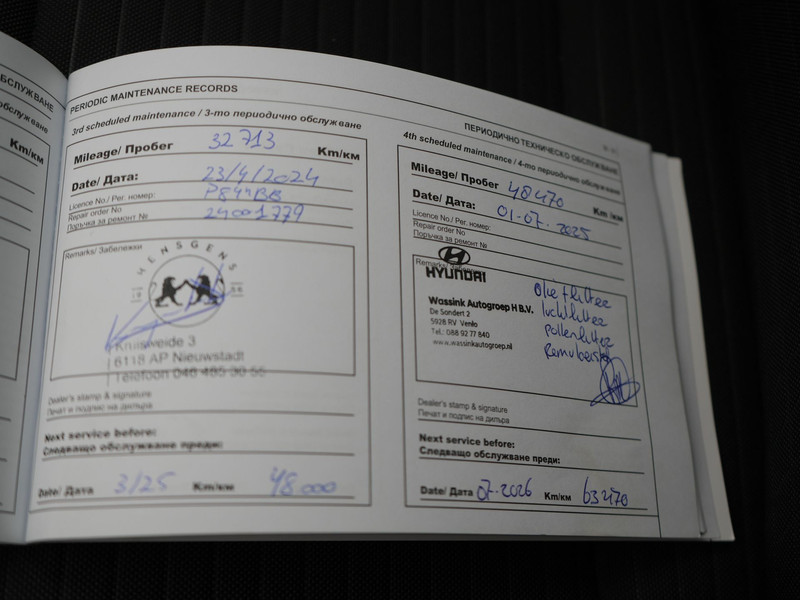 БСЛУЖВАНЕ
обслужване
Km/км
PERIODIC MAINTENANCE RECORDS
3rd scheduled maintenance / 3-то периодично обслужване
Mileage/ Пробег 32 713 Km/км
Date/ Дата: 23/4/2024
Licence No./ Рег. номер:
Repair order No
Поръчка за ремонт № 24001779
Remarks/ Забележки
HENSGENS
Kruisweide 3
6118 AP Nieuwstadt
Telefoon 046 485 30 56
Dealer's stamp & signature
Печат и подпис на дилъра
Next service before:
Следващо обслужване преди:
Date/ Дата 3/25 Km/км 48 000
ПЕРИОДИЧНО ТЕХНИЧЕСКО ОБСЛУЖВАНЕ
4th scheduled maintenance / 4-то периодично обслужване
Mileage/ Пробег 48470 Km /км
Date/ Дата: 01-07-2025
Licence No./ Рег. номер:
Repair order No
Поръчка за ремонт №
Remarks/
HYUNDAI
Wassink Autogroep H B.V.
De Sondert 2
5928 RV Venlo
Tel.: 088 92 77 840
www.wassinkautogroep.nl
Olie filter
luchtfilter
pollenfilter
Remvloeistof
Dealer's stamp & signature
Печат и подпис на дилъра
Next service before:
Следващо обслужване преди:
Date/ Дата 07-2026 Km/км 63470